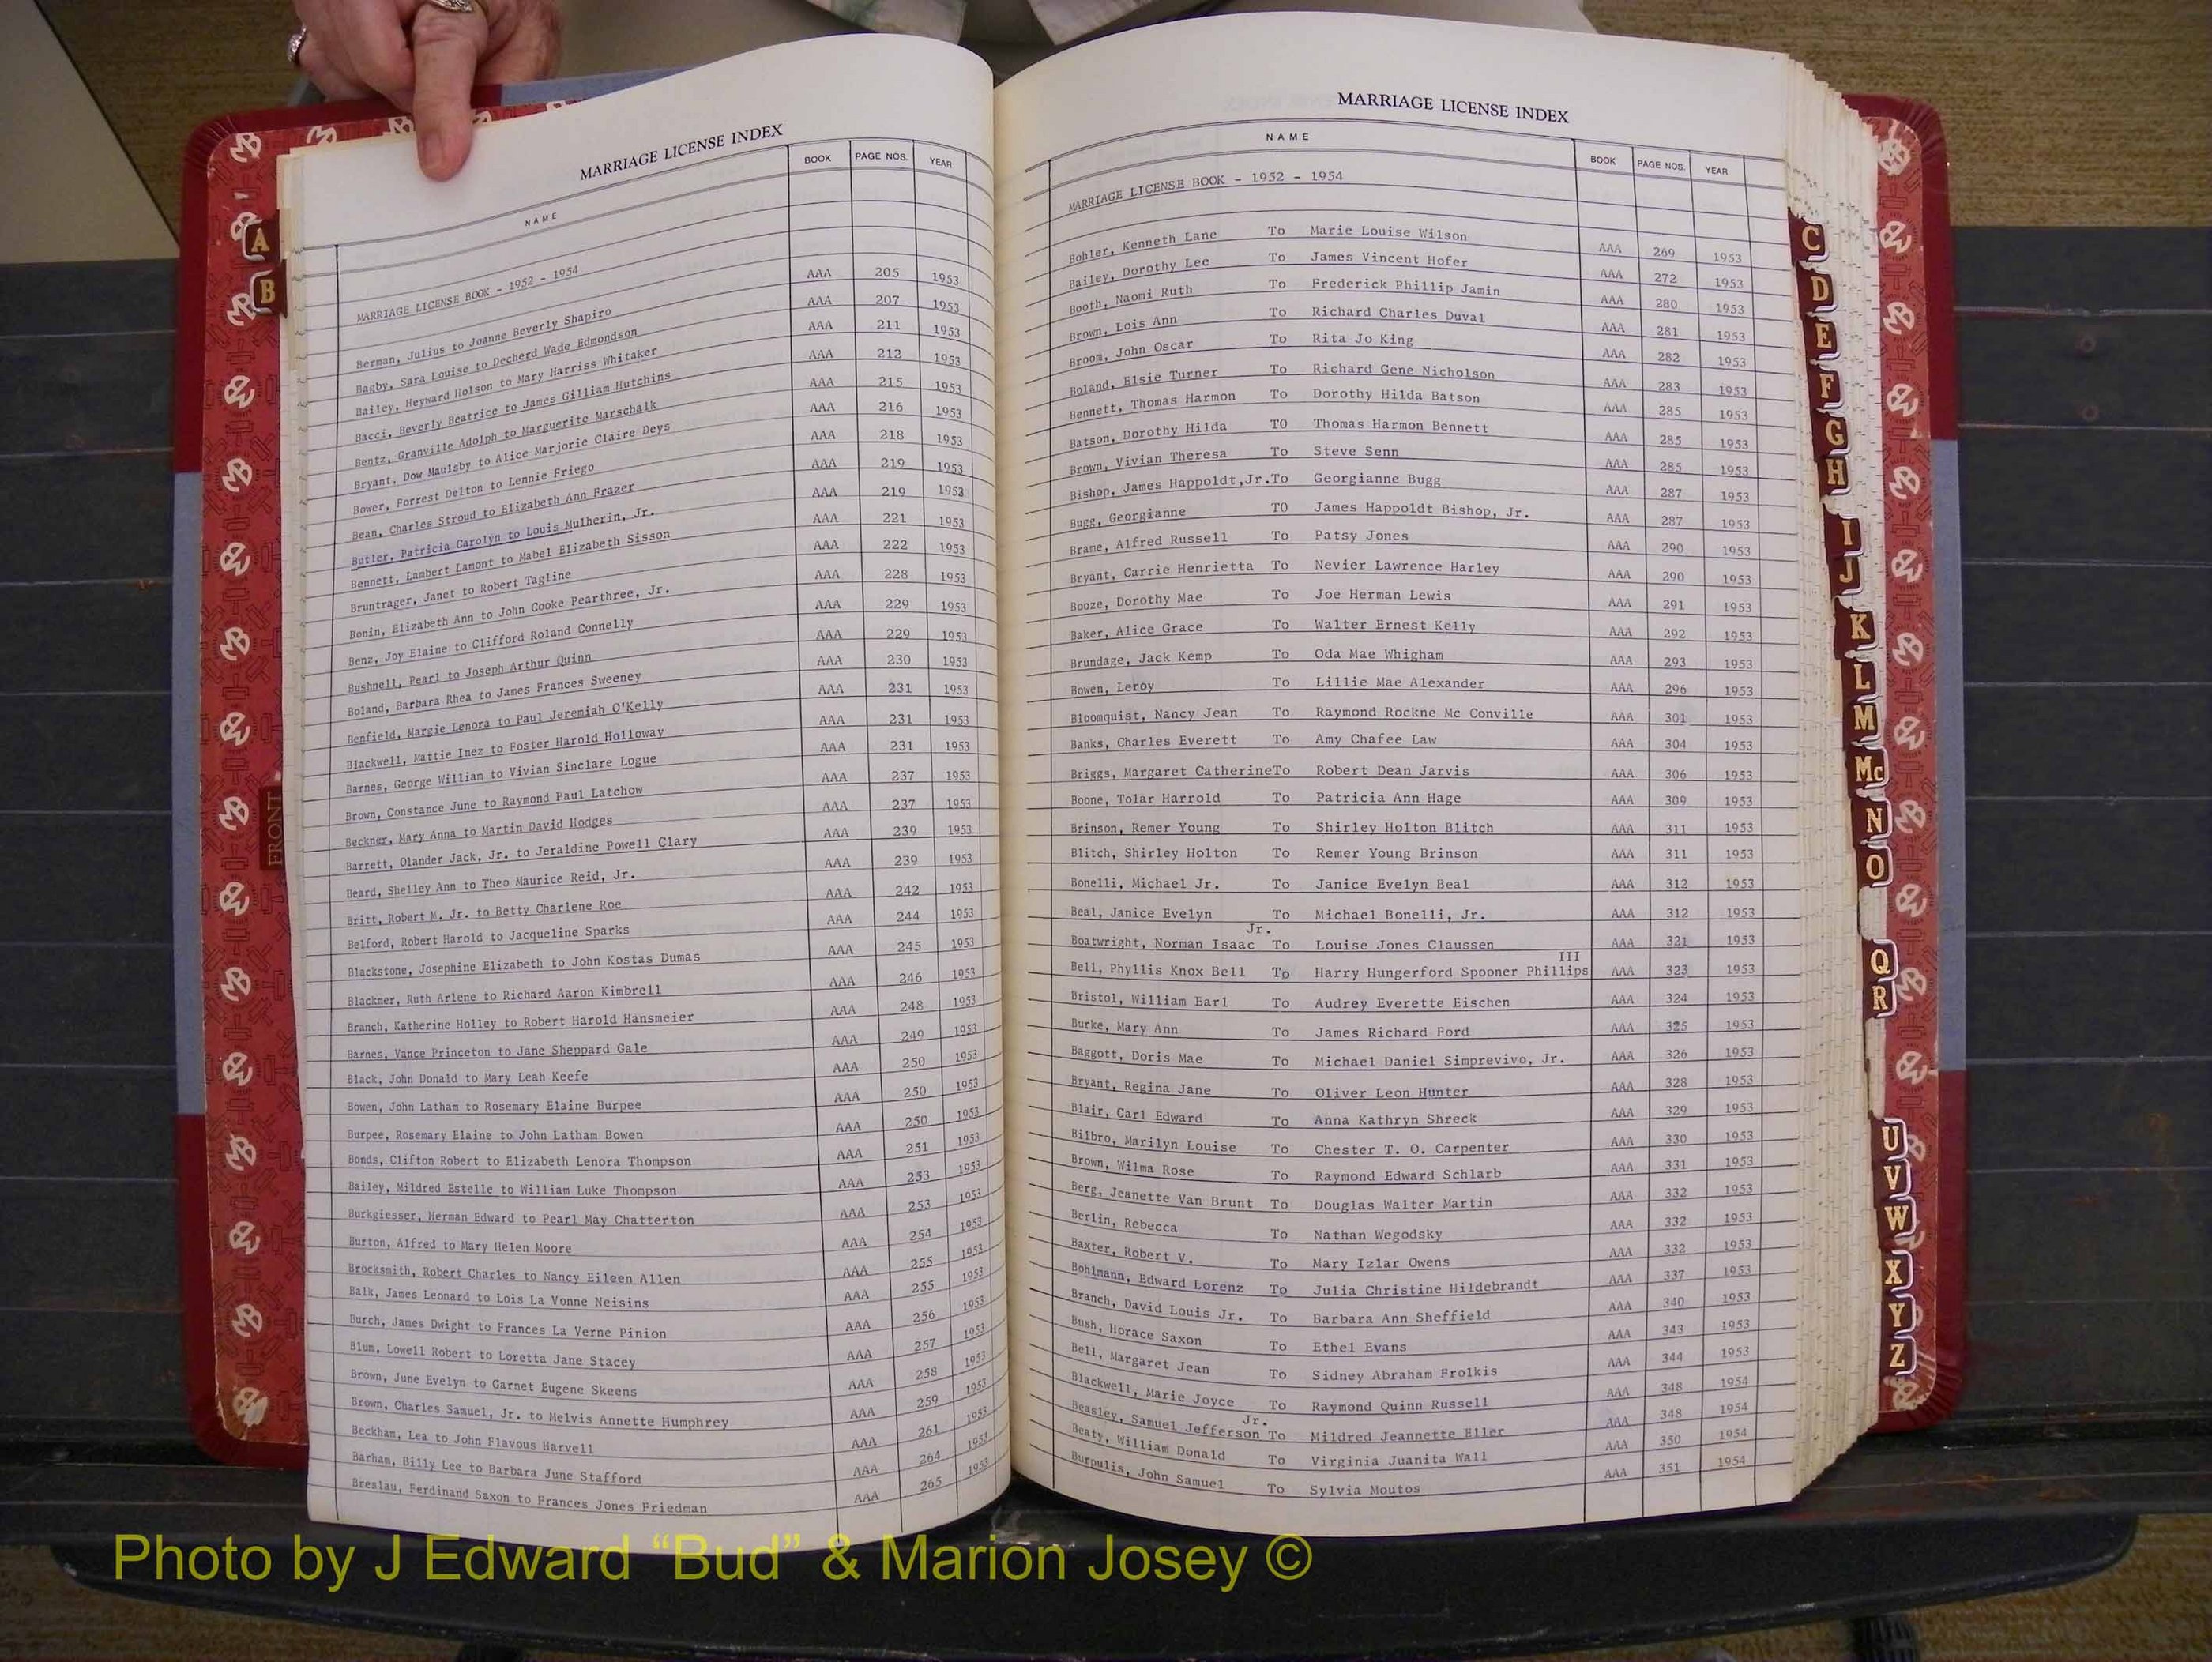 MARRIAGE LICENSE INDEX
NAME BOOK PAGE NOS. YEAR
MARRIAGE LICENSE BOOK - 1952 - 1954
Berman, Julius to Joanne Beverly Shapiro AAA 205 1953
Bagby, Sara Louise to Decherd Wade Edmondson AAA 207 1953
Bailey, Heyward Holson to Mary Harriss Whitaker AAA 211 1953
Bacci, Beverly Beatrice to James Gilliam Hutchins AAA 212 1953
Bentz, Granville Adolph to Marguerite Marschalk AAA 215 1953
Bryant, Dow Maulsby to Alice Marjorie Claire Deys AAA 216 1953
Bower, Forrest Delton to Lennie Friego AAA 218 1953
Bean, Charles Stroud to Elizabeth Ann Frazer AAA 219 1953
Butler, Patricia Carolyn to Louis Mulherin, Jr. AAA 219 1953
Bennett, Lambert Lamont to Mabel Elizabeth Sisson AAA 221 1953
Bruntrager, Janet to Robert Tagline AAA 222 1953
Bonin, Elizabeth Ann to John Cooke Pearthree, Jr. AAA 228 1953
Benz, Joy Elaine to Clifford Roland Connelly AAA 229 1953
Bushnell, Pearl to Joseph Arthur Quinn AAA 229 1953
Boland, Barbara Rhea to James Frances Sweeney AAA 230 1953
Benfield, Margie Lenora to Paul Jeremiah O'Kelly AAA 231 1953
Blackwell, Mattie Inez to Foster Harold Holloway AAA 231 1953
Barnes, George William to Vivian Sinclare Logue AAA 231 1953
Brown, Constance June to Raymond Paul Latchow AAA 237 1953
Beckner, Mary Anna to Martin David Hodges AAA 237 1953
Barrett, Olander Jack, Jr. to Jeraldine Powell Clary AAA 239 1953
Beard, Shelley Ann to Theo Maurice Reid, Jr. AAA 239 1953
Britt, Robert M. Jr. to Betty Charlene Roe AAA 242 1953
Belford, Robert Harold to Jacqueline Sparks AAA 244 1953
Blackstone, Josephine Elizabeth to John Kostas Dumas AAA 245 1953
Blackmer, Ruth Arlene to Richard Aaron Kimbrell AAA 246 1953
Branch, Katherine Holley to Robert Harold Hansmeier AAA 248 1953
Barnes, Vance Princeton to Jane Sheppard Gale AAA 249 1953
Black, John Donald to Mary Leah Keefe AAA 250 1953
Bowen, John Latham to Rosemary Elaine Burpee AAA 250 1953
Burpee, Rosemary Elaine to John Latham Bowen AAA 250 1953
Bonds, Clifton Robert to Elizabeth Lenora Thompson AAA 251 1953
Bailey, Mildred Estelle to William Luke Thompson AAA 253 1953
Burkgiesser, Herman Edward to Pearl May Chatterton AAA 253 1953
Burton, Alfred to Mary Helen Moore AAA 254 1953
Brocksmith, Robert Charles to Nancy Eileen Allen AAA 255 1953
Balk, James Leonard to Lois La Vonne Neisins AAA 255 1953
Burch, James Dwight to Frances La Verne Pinion AAA 256 1953
Blum, Lowell Robert to Loretta Jane Stacey AAA 257 1953
Brown, June Evelyn to Garnet Eugene Skeens AAA 258 1953
Brown, Charles Samuel, Jr. to Melvis Annette Humphrey AAA 259 1953
Beckham, Lea to John Flavous Harvell AAA 261 1953
Barham, Billy Lee to Barbara June Stafford AAA 264 1953
Breslau, Ferdinand Saxon to Frances Jones Friedman AAA 265 1953
A
B
FRONT
MARRIAGE LICENSE INDEX
NAME BOOK PAGE NOS. YEAR
MARRIAGE LICENSE BOOK - 1952 - 1954
Bohler, Kenneth Lane To Marie Louise Wilson AAA 269 1953
Bailey, Dorothy Lee To James Vincent Hofer AAA 272 1953
Booth, Naomi Ruth To Frederick Phillip Jamin AAA 280 1953
Brown, Lois Ann To Richard Charles Duval AAA 281 1953
Broom, John Oscar To Rita Jo King AAA 282 1953
Boland, Elsie Turner To Richard Gene Nicholson AAA 283 1953
Bennett, Thomas Harmon To Dorothy Hilda Batson AAA 285 1953
Batson, Dorothy Hilda TO Thomas Harmon Bennett AAA 285 1953
Brown, Vivian Theresa To Steve Senn AAA 285 1953
Bishop, James Happoldt,Jr.To Georgianne Bugg AAA 287 1953
Bugg, Georgianne TO James Happoldt Bishop, Jr. AAA 287 1953
Brame, Alfred Russell To Patsy Jones AAA 290 1953
Bryant, Carrie Henrietta To Nevier Lawrence Harley AAA 290 1953
Booze, Dorothy Mae To Joe Herman Lewis AAA 291 1953
Baker, Alice Grace To Walter Ernest Kelly AAA 292 1953
Brundage, Jack Kemp To Oda Mae Whigham AAA 293 1953
Bowen, Leroy To Lillie Mae Alexander AAA 296 1953
Bloomquist, Nancy Jean To Raymond Rockne Mc Conville AAA 301 1953
Banks, Charles Everett To Amy Chafee Law AAA 304 1953
Briggs, Margaret CatherineTo Robert Dean Jarvis AAA 306 1953
Boone, Tolar Harrold To Patricia Ann Hage AAA 309 1953
Brinson, Remer Young To Shirley Holton Blitch AAA 311 1953
Blitch, Shirley Holton To Remer Young Brinson AAA 311 1953
Bonelli, Michael Jr. To Janice Evelyn Beal AAA 312 1953
Beal, Janice Evelyn To Michael Bonelli, Jr. AAA 312 1953
Jr.
Boatwright, Norman Isaac To Louise Jones Claussen AAA 321 1953
III
Bell, Phyllis Knox Bell To Harry Hungerford Spooner Phillips AAA 323 1953
Bristol, William Earl To Audrey Everette Eischen AAA 324 1953
Burke, Mary Ann To James Richard Ford AAA 325 1953
Baggott, Doris Mae To Michael Daniel Simprevivo, Jr. AAA 326 1953
Bryant, Regina Jane To Oliver Leon Hunter AAA 328 1953
Blair, Carl Edward To Anna Kathryn Shreck AAA 329 1953
Bilbro, Marilyn Louise To Chester T. O. Carpenter AAA 330 1953
Brown, Wilma Rose To Raymond Edward Schlarb AAA 331 1953
Berg, Jeanette Van Brunt To Douglas Walter Martin AAA 332 1953
Berlin, Rebecca To Nathan Wegodsky AAA 332 1953
Baxter, Robert V. To Mary Izlar Owens AAA 332 1953
Bohlmann, Edward Lorenz To Julia Christine Hildebrandt AAA 337 1953
Branch, David Louis Jr. To Barbara Ann Sheffield AAA 340 1953
Bush, Horace Saxon To Ethel Evans AAA 343 1953
Bell, Margaret Jean To Sidney Abraham Frolkis AAA 344 1953
Blackwell, Marie Joyce To Raymond Quinn Russell AAA 348 1954
Jr.
Beasley, Samuel Jefferson To Mildred Jeannette Eller AAA 348 1954
Beaty, William Donald To Virginia Juanita Wall AAA 350 1954
Burpulis, John Samuel To Sylvia Moutos AAA 351 1954
C
D
E
F
G
H
I
J
K
L
M
Mc
N
O
Q
R
U
V
W
X
Y
Z
Photo by J Edward “Bud” & Marion Josey ©